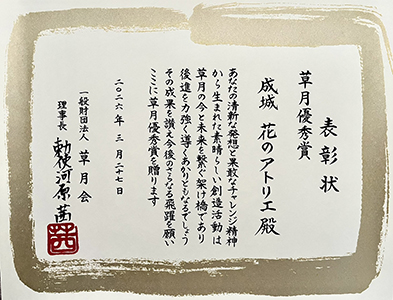 表彰状
草月優秀賞
成城 花のアトリエ 殿
あなたの清新な発想と果敢なチャレンジ精神
から生まれた素晴らしい創造活動は
草月の今と未来を繋ぐ架け橋であり
後進を力強く導くあかりともなるでしょう
その成果を讃え今後のさらなる飛躍を願い
ここに草月優秀賞を贈ります
二〇二六年 三月二十七日
一般財団法人 草月会
理事長 勅使河原 茜
茜